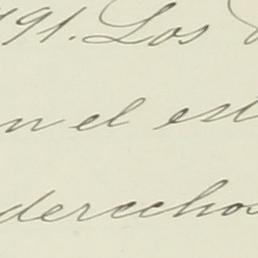 791. Los
n el est
derechos